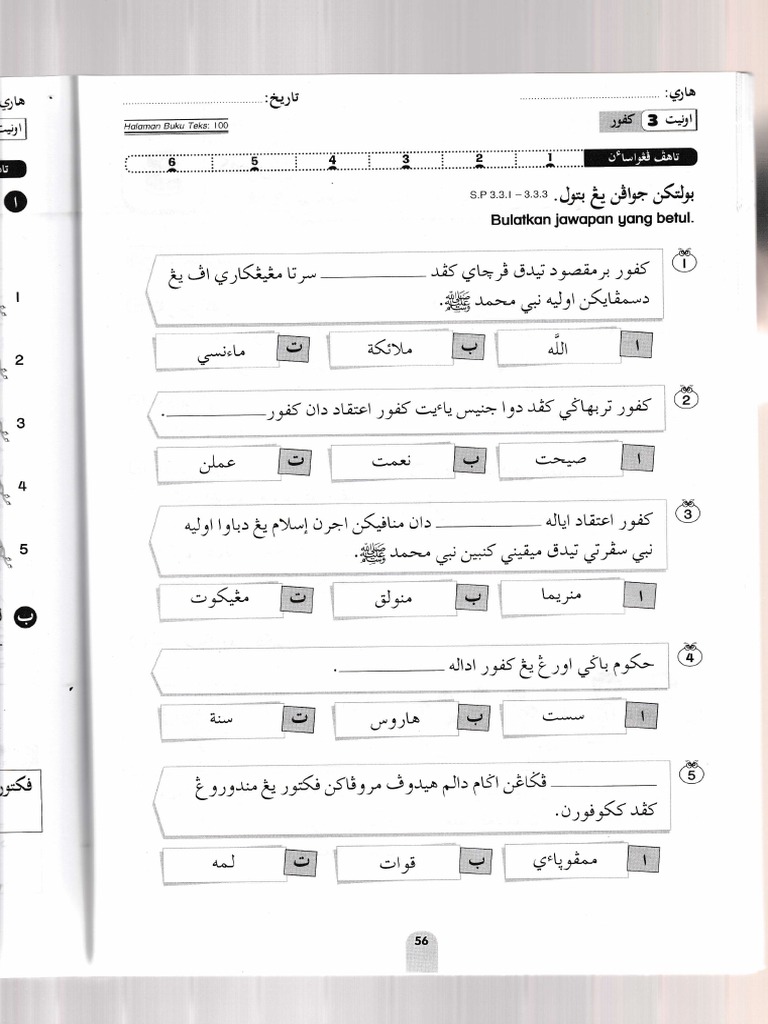 هاري: ........................
تاريخ: ........................
اونيت 3 كفور
Halaman Buku Teks: 100
تاهڤ ڤڠواساءن
1 2 3 4 5 6
بولتكن جواڤن يڠ بتول. S.P 3.3.1 – 3.3.3
Bulatkan jawapan yang betul.
1
كفور برمقصود تيدق ڤرچاي كڤد ____________ سرتا مڠيڠكاري اڤ يڠ
دسمڤايكن اوليه نبي محمد ﷺ.
ا الله
ب ملائكة
ت ماءنسي
2
كفور تربهاݢي كڤد دوا جنيس ياءيت كفور اعتقاد دان كفور____________.
ا صيحت
ب نعمت
ت عملن
3
كفور اعتقاد اياله ____________ دان منافيكن اجرن إسلام يڠ دباوا اوليه
نبي سڤرتي تيدق ميقيني كنبين نبي محمد ﷺ.
ا منريما
ب منولق
ت مڠيكوت
4
حكوم باݢي اورڠ يڠ كفور اداله ____________.
ا سست
ب هاروس
ت سنة
5
____________ ڤݢاڠن اݢام دالم هيدوڤ مروڤاكن فكتور يڠ مندوروڠ
كڤد ككوفورن.
ا ممڤوڽاءي
ب قوات
ت لمه
56
هاري
اونيت
ا
1
2
3
4
5
ب
فكتور